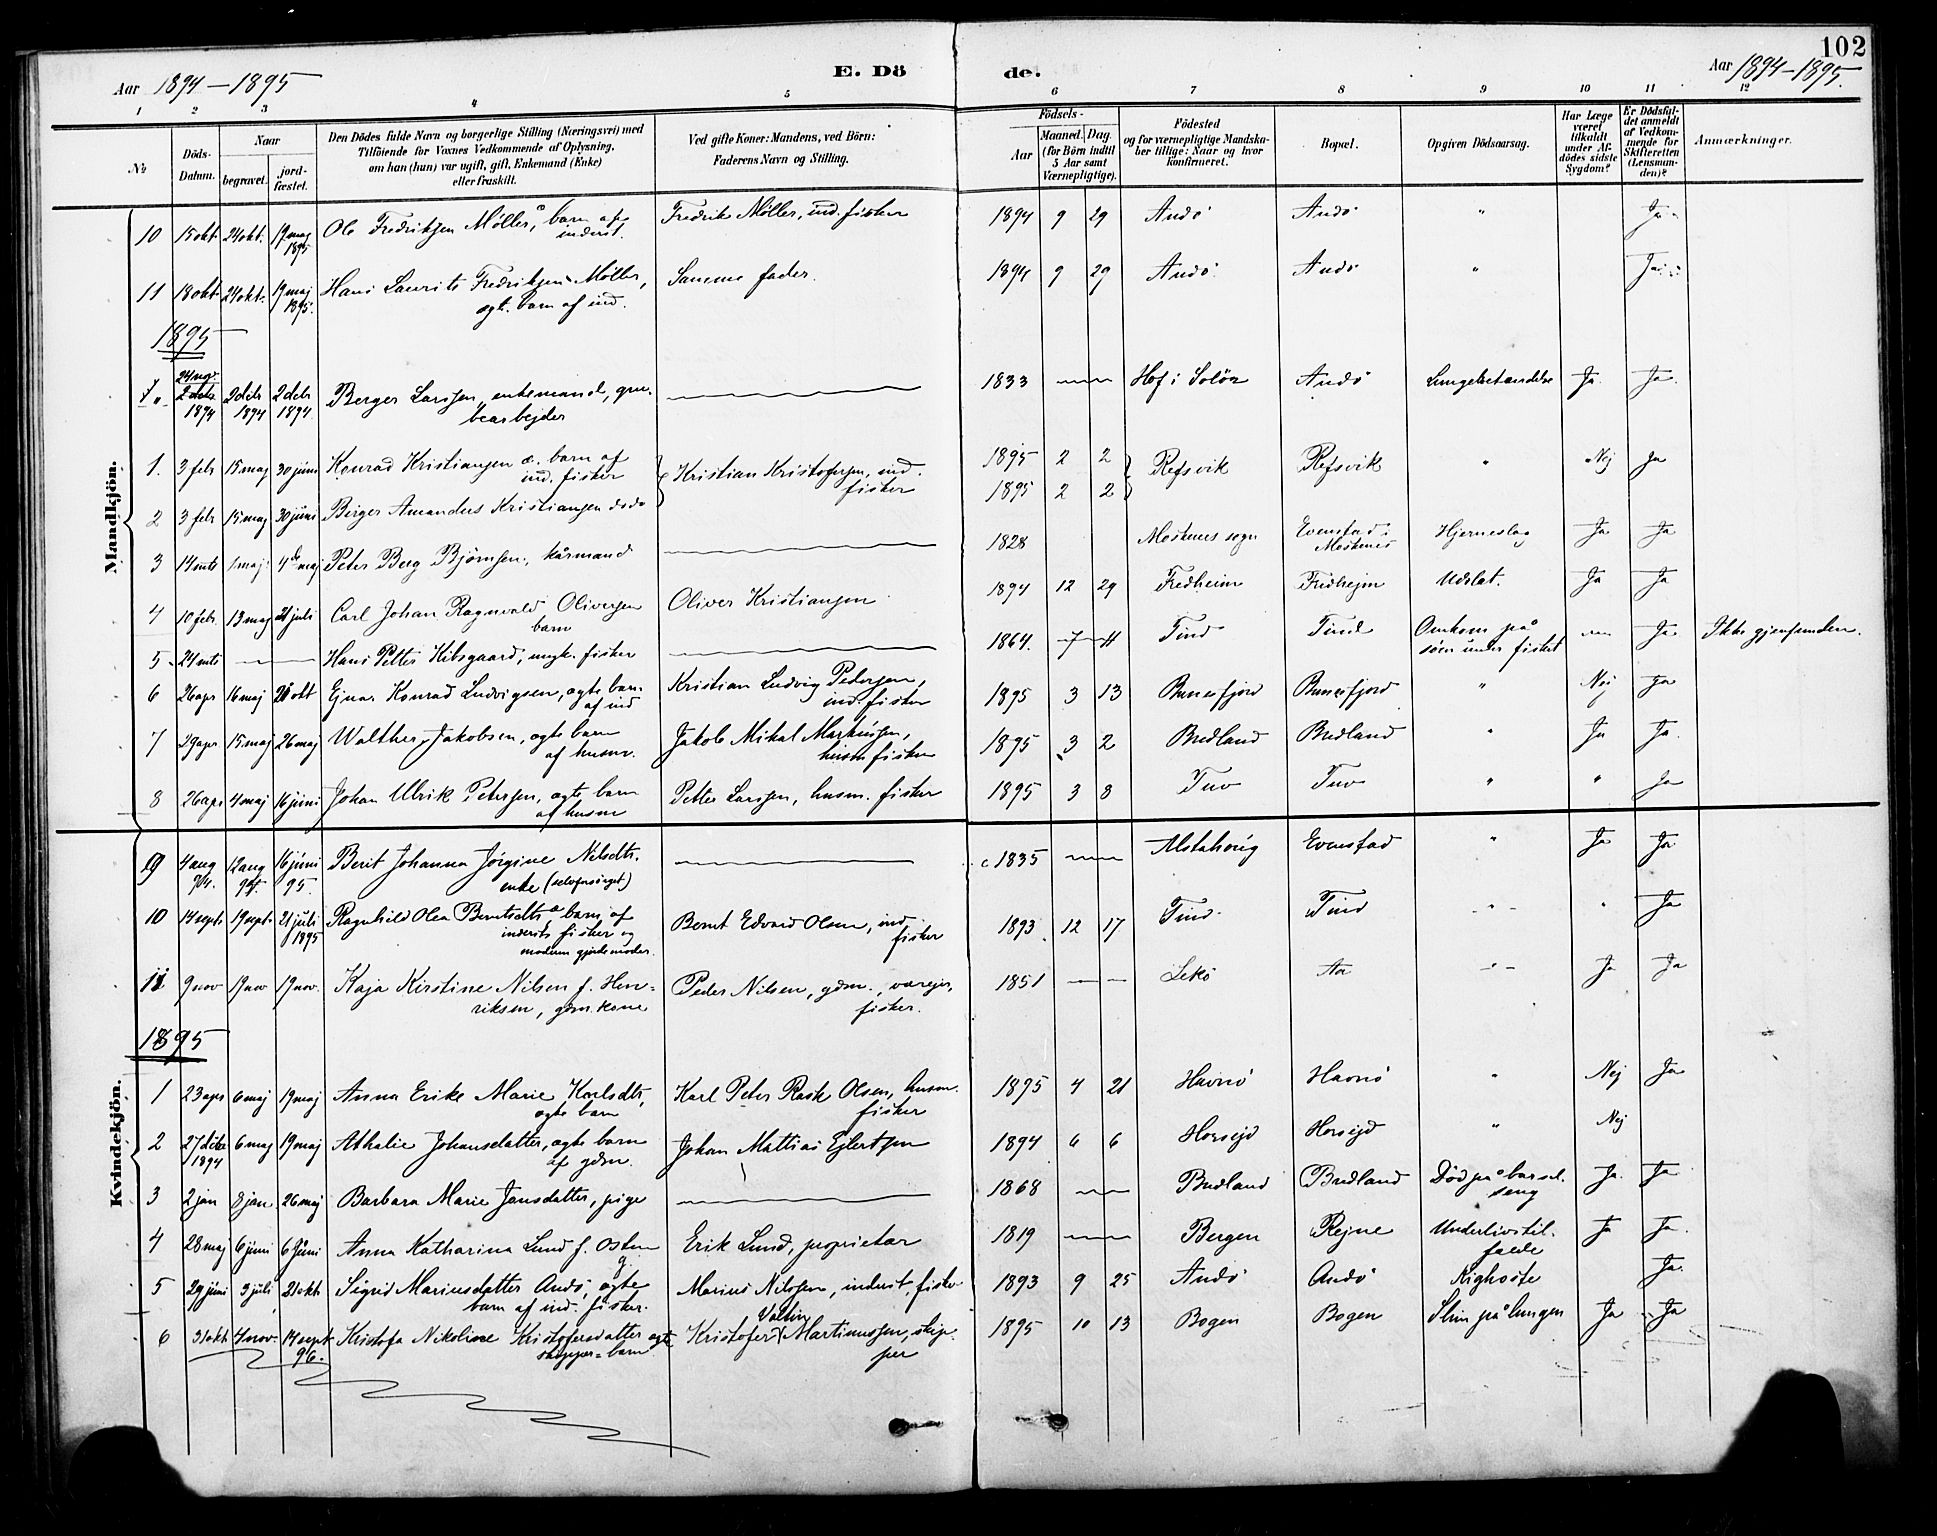 102
Aar 1894–1895
E. Dö
de.
Aar 1894–1895.
1 2 3 4 5 6 7 8 9 10 11 12
No
Döds-Datum.
Naar
begravet.
jord-fæstet.
Den Dödes fulde Navn og borgerlige Stilling (Næringsvei) med
Tilföiende for Voxnes Vedkommende af Oplysning,
om han (hun) var ugift, gift, Enkemand (Enke)
eller fraskilt.
Ved gifte Koner: Mandens, ved Börn:
Faderens Navn og Stilling.
Födsels-
Aar
Maaned. Dag.
(for Börn indtil
5 Aar samt
Værnepligtige).
Födested
og for værnepligtige Mandska-
ber tillige: Naar og hvor
konfirmeret.
Bopæl.
Opgiven Dödsaarsag.
Har Læge
været
tilkaldt
under Af-
dödes sidste
Sygdom?
Er Dödsfal-
det anmeldt
af Vedkom-
mende for
Skifteretten
(Lensman-
den)?
Anmærkninger.
Mandkjön.
10 15 okt. 24 okt. 19 maj 1895 Ole Fredriksen Møller, barn af inderst. Fredrik Møller, ind. fisker 1894 9 29 Andö Andö " Ja
11 18 okt. 24 okt. 19 maj 1895. Hans Laurits Fredriksen Møller, ægt. barn af ind. Samme fader. 1894 9 29 Andö Andö " Ja
1895
24 nov. 2 debr 1894 2 debr 1894 2 debr 1894. Berger Larssen, enkemand, grubearbejder 1833 Hof i Solör Andö Lungebetændelse Ja. Ja.
1. 3 febr 15 maj 30 juni Konrad Kristiansen æ. barn af ind. fisker Kristian Kristofersen, ind. fisker 1895 2 2 Refsvik Refsvik " Nej Ja
2 3 febr 15 maj 30 juni Berger Amandus Kristiansen do do 1895 2 2
3 14 mts 1 maj 4 maj Peter Berg Björnsen, kårmand 1828 Moskenes sogn Evenstad i Moskenes Hjerneslag Ja Ja
4 10 febr. 13 maj 21 juli Carl Johan Ragnvald Oliversen barn Oliver Kristiansen 1894 12 29 Fredheim Fridhejm Udslæt. Ja Ja
5 24 mts Hans Petter Kibsgaard, ungk. fisker 1864. 7 Tind Tind Omkom på söen under fisket Ja Ikke gjenfunden.
6 26 apr 16 maj 20 okt Ejnar Konrad Ludvigsen, ægte barn af ind Kristian Ludvig Pedersen, ind. fisker 1895 3 13 Bunesfjord Bunesfjord " Nej Ja
7 29 apr 15 maj 26 maj Walther Jakobsen, ægte barn af husm. Jakob Mikal Markussen, husm fisker 1895 3 2 Bredland Bredland " Ja Ja.
8 26 apr 4 maj 16 juni Johan Ulrik Petersen, ægte barn af husm Petter Larssen, husm. fisker 1895 3 8 Tuv Tuv " " Ja
Kvindekjön.
9 4 aug 94. 12 aug 94. 16 juni 95. Berit Johanna Jörgine Nilsdtr. enke (selvforsörget) c. 1835 Alstahoug Evenstad " Ja Ja
10 14 sept. 19 sept. 21 juli 1895 Ragnhild Olea Berntsdtr æ barn af inderst fisker og moderen gjordemoder. Bernt Edvard Olsen, ind fisker 1893 12 17 Tind Tind " " Ja
11 9 nov 19 nov 19 nov. Kaja Kirstine Nilsen f. Henriksen, gdm. kone Peder Nilsen, gdm., værejer, fisker. 1851 Lekö Aa " Ja Ja
1895
1 23 apr 6 maj 19 maj Anna Erike Marie Karlsdtr, ægte barn Karl Peter Rask Olsen, husm. fisker 1895 4 21 Havnö Havnö " Nej Ja
2 27 debr 1894 6 maj 19 maj Athalie Johansdatter, ægte barn af gdm. Johan Mattias Ejlertsen 1894 6 6 Horsejd Horsejd " Nej
3 2 jan 8 jan 26 maj Barbara Marie Jansdatter, pige 1868 Bredland Bredland Död på barselseng Ja. Ja
4 28 maj 6 juni 6 juni Anna Katharina Lund f. Osten Erik Lund, proprietær 1819 Bergen Rejne Underlivstilfælde Ja Ja.
5 29 juni 3 juli 21 okt Sigrid Mariusdatter Andö, ægte barn af ind. fisker. Marius Nilssen, inderst, fisker 1893 9 25 Andö Andö Kighoste Ja.
6 31 okt 7 nov. 14 sept. 96. Kristofa Nikoline Kristofersdatter ægte skipper=barn Kristofer Valtin Martinussen, skipper 1895 10 13 Bogen Bogen Slim på lungen Ja Ja